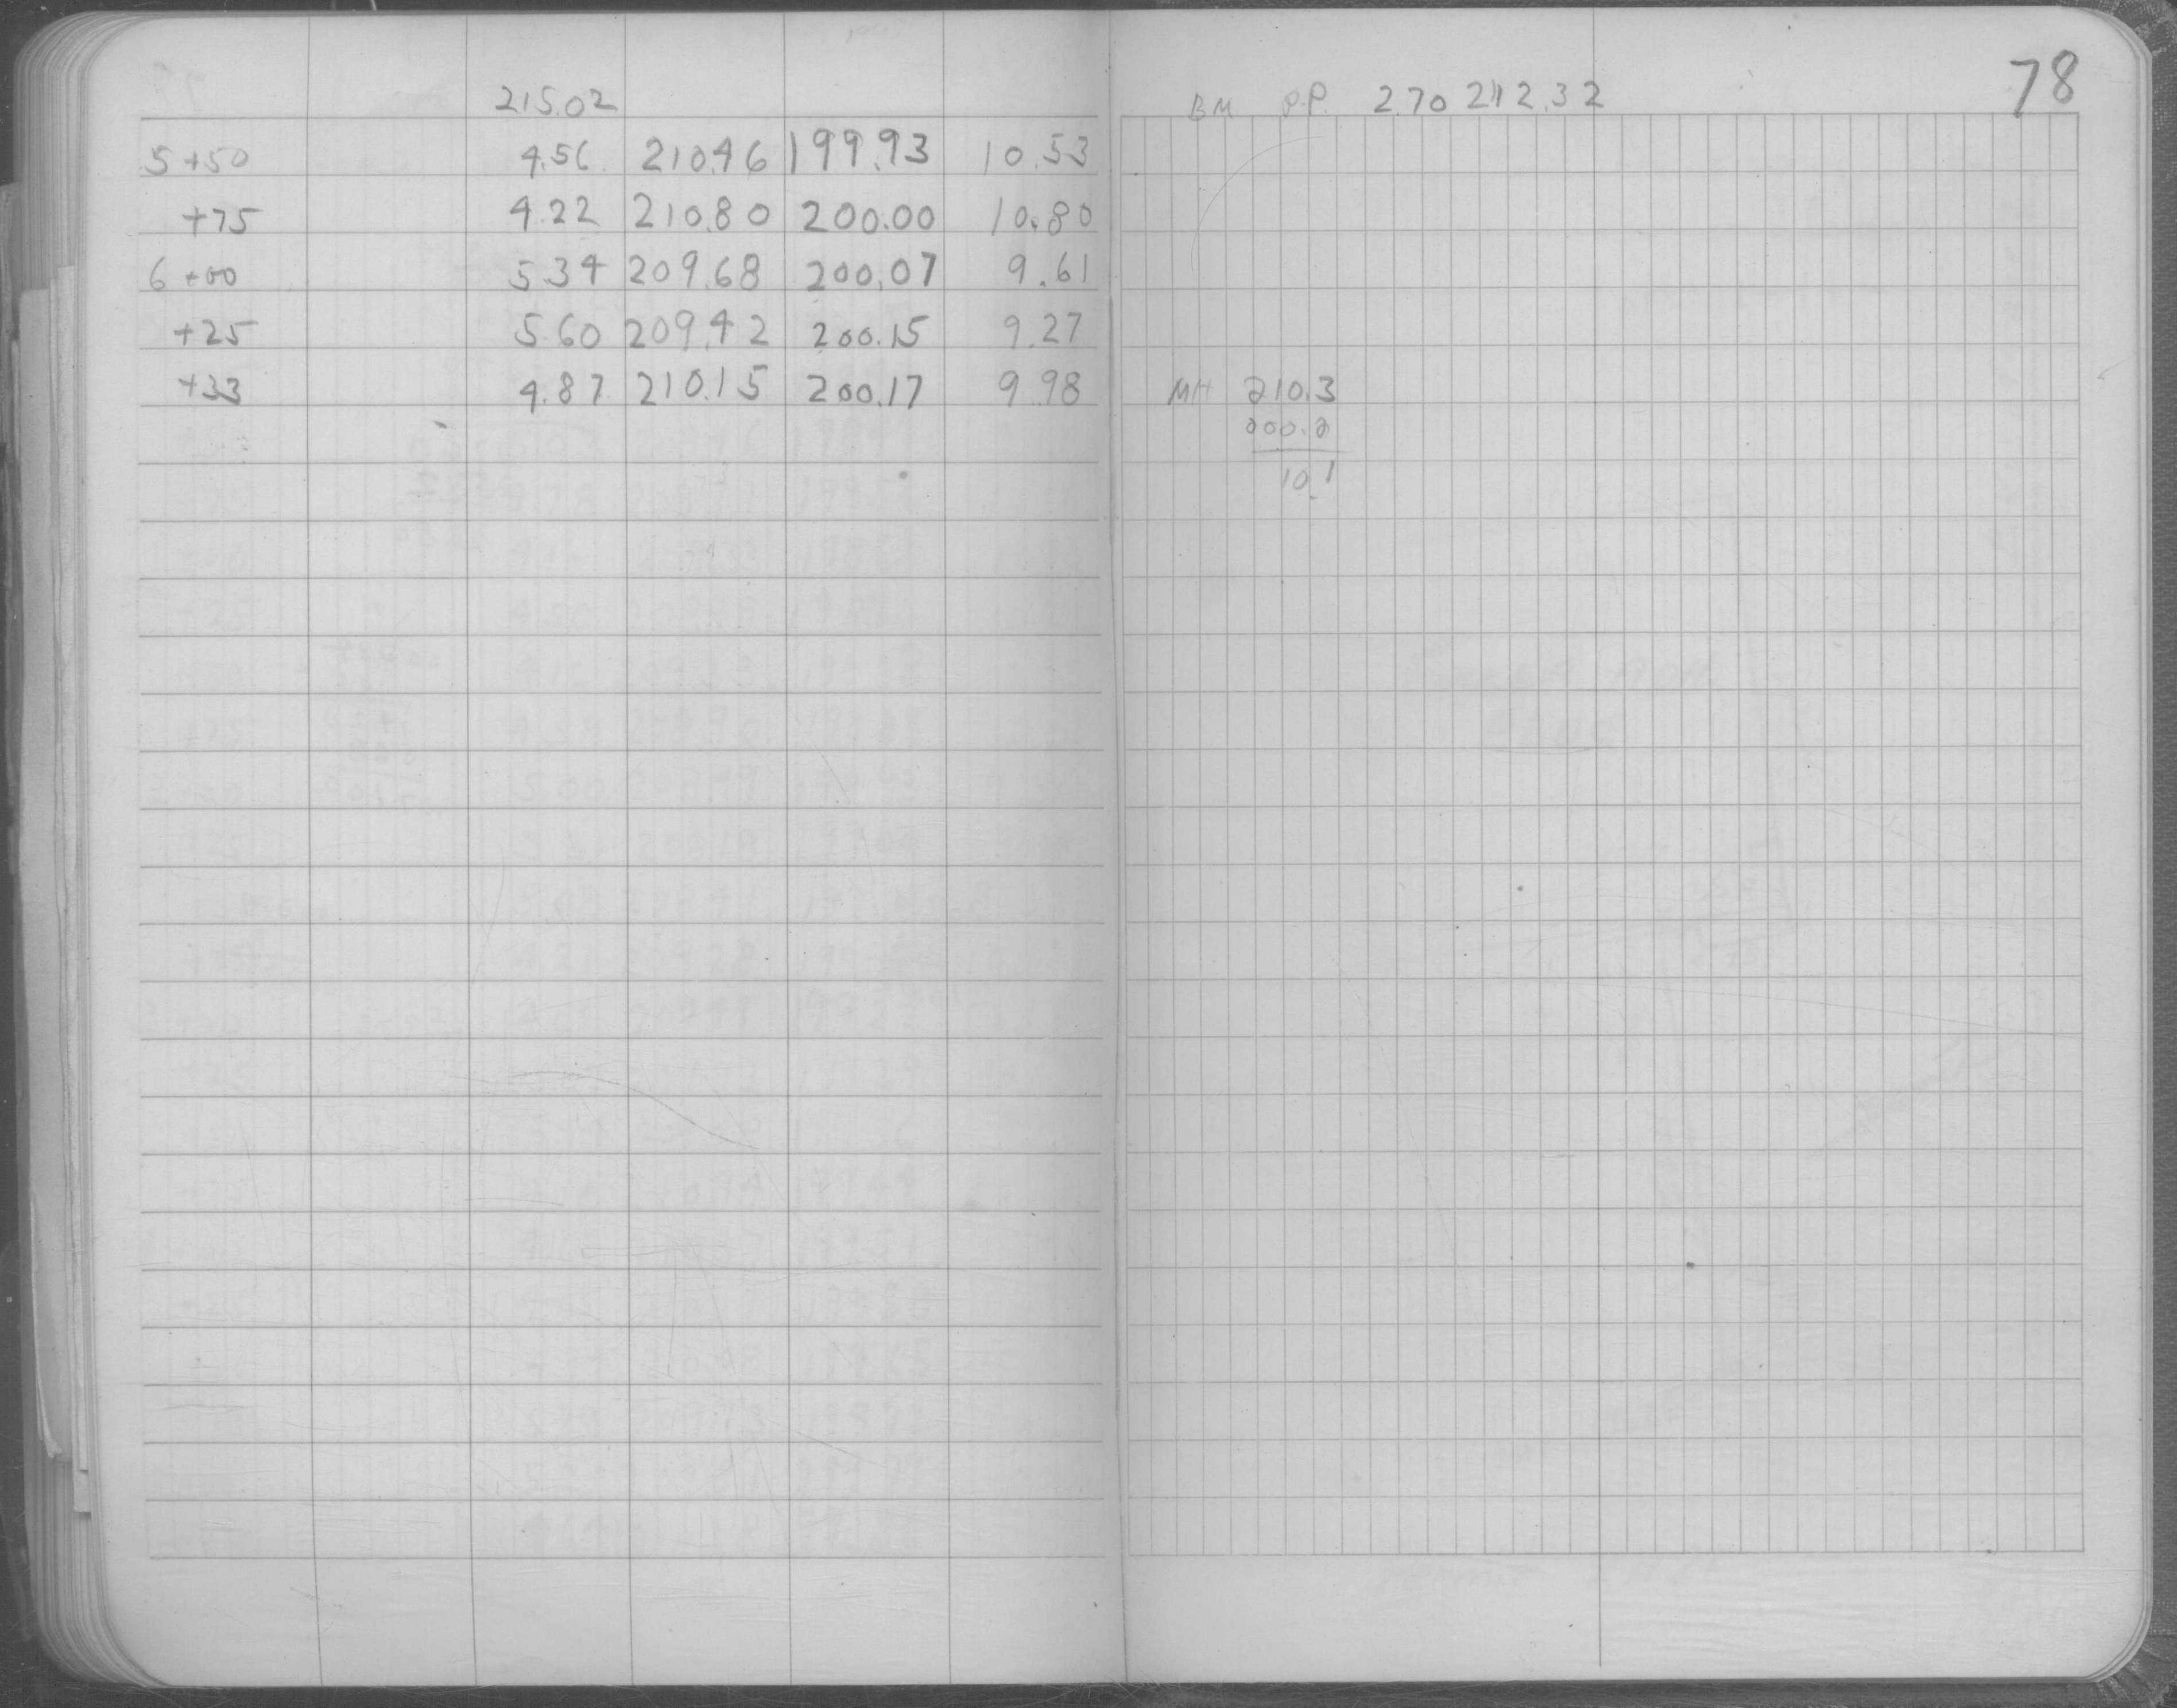 78
215.02
5+50 4.56 210.46 199.93 10.53
+75 4.22 210.80 200.00 10.80
6+00 5.34 209.68 200.07 9.61
+25 5.60 209.42 200.15 9.27
+33 4.87 210.15 200.17 9.98
BM P.P. 2.70 212.32
MH 210.3
200.2
10.1